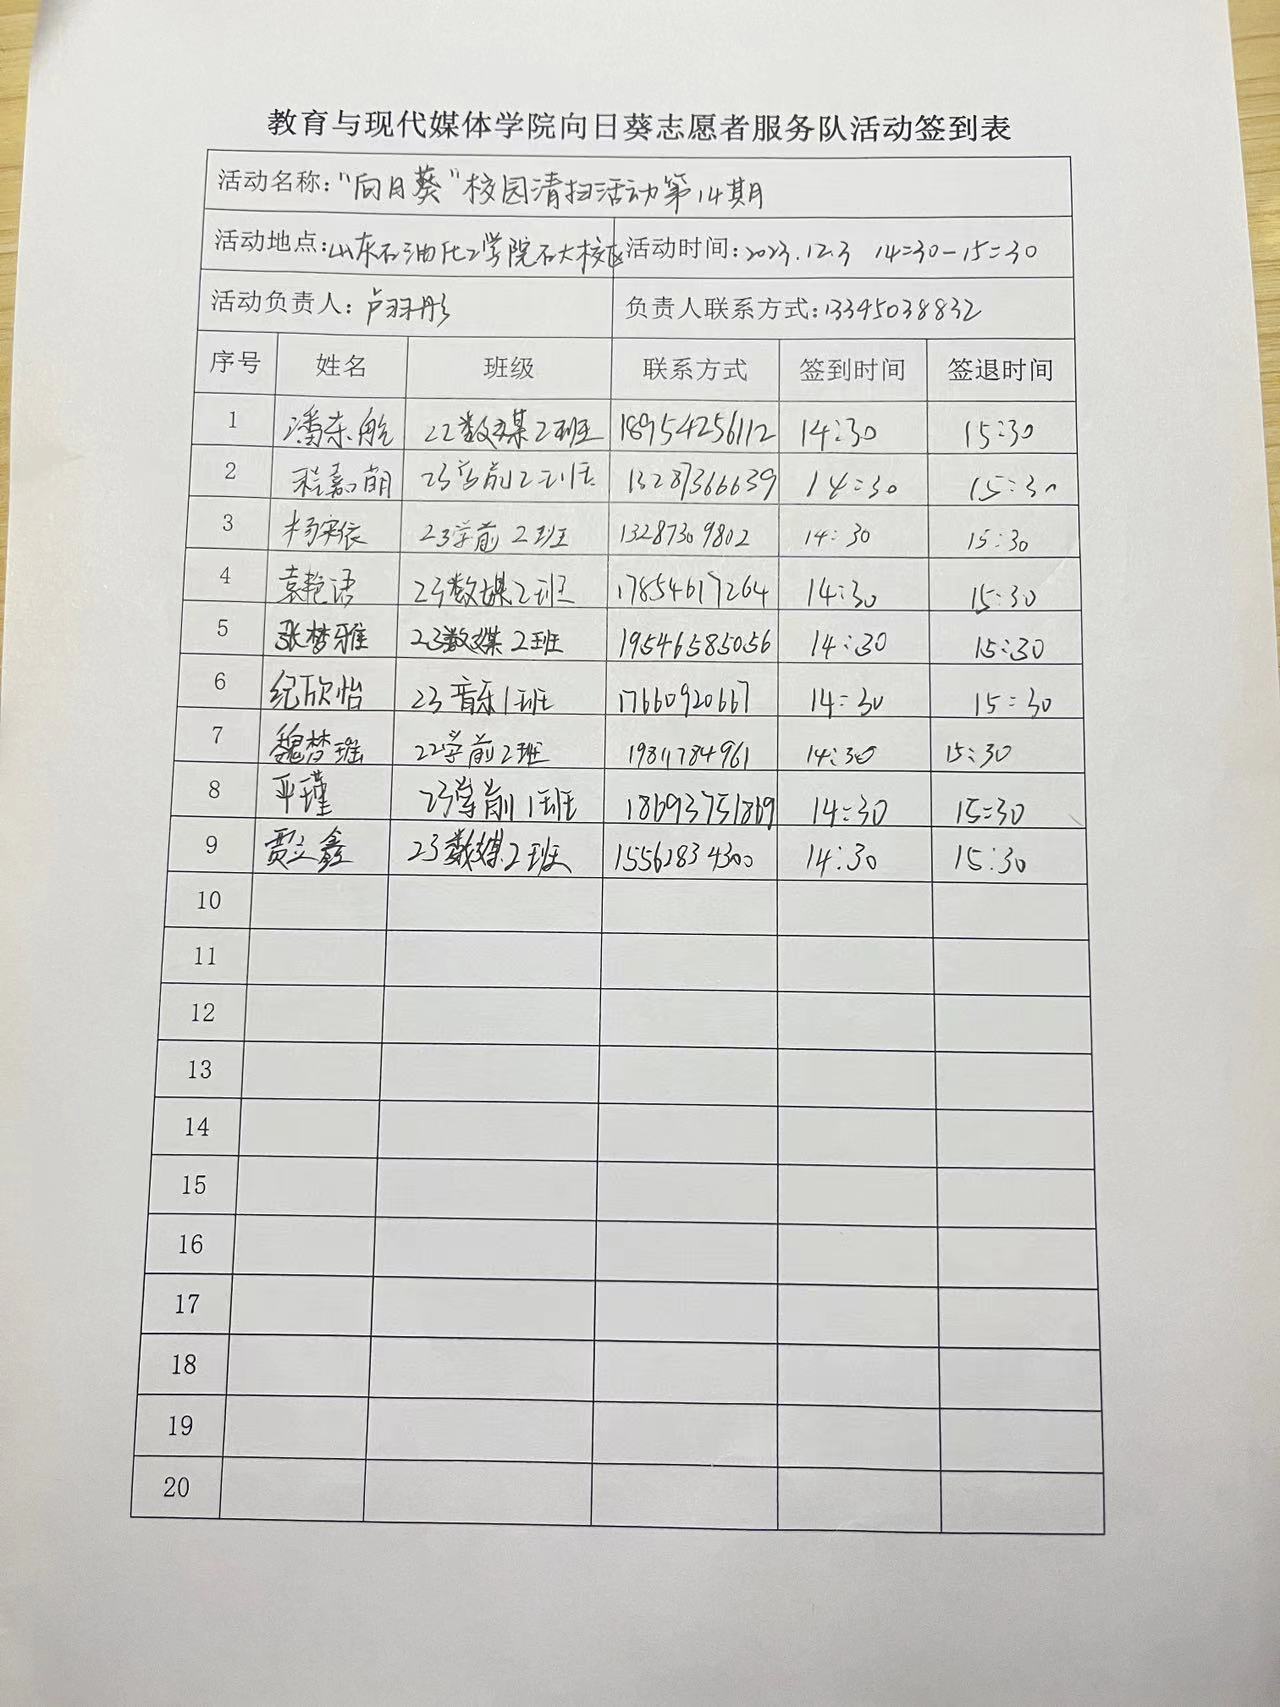 教育与现代媒体学院向日葵志愿者服务队活动签到表
活动名称:"向日葵"校园清扫活动第14期
活动地点:山东石油化工学院石大校区 活动时间:2023.12.3 14:30-15:30
活动负责人:卢羽彤 负责人联系方式:13345038832
序号 姓名 班级 联系方式 签到时间 签退时间
1 潘东航 22数媒2班 18954256112 14:30 15:30
2 程嘉萌 23学前2班 13287366639 14:30 15:30
3 杨宋依 23学前2班 13287309802 14:30 15:30
4 袁艳语 23数媒2班 17854617264 14:30 15:30
5 张梦雅 23数媒2班 19546585056 14:30 15:30
6 纪欣怡 23音乐1班 17660920667 14:30 15:30
7 魏梦瑶 22学前2班 19811784961 14:30 15:30
8 平瑾 23学前1班 18693751869 14:30 15:30
9 贾立鑫 23数媒2班 15562834300 14:30 15:30
10
11
12
13
14
15
16
17
18
19
20